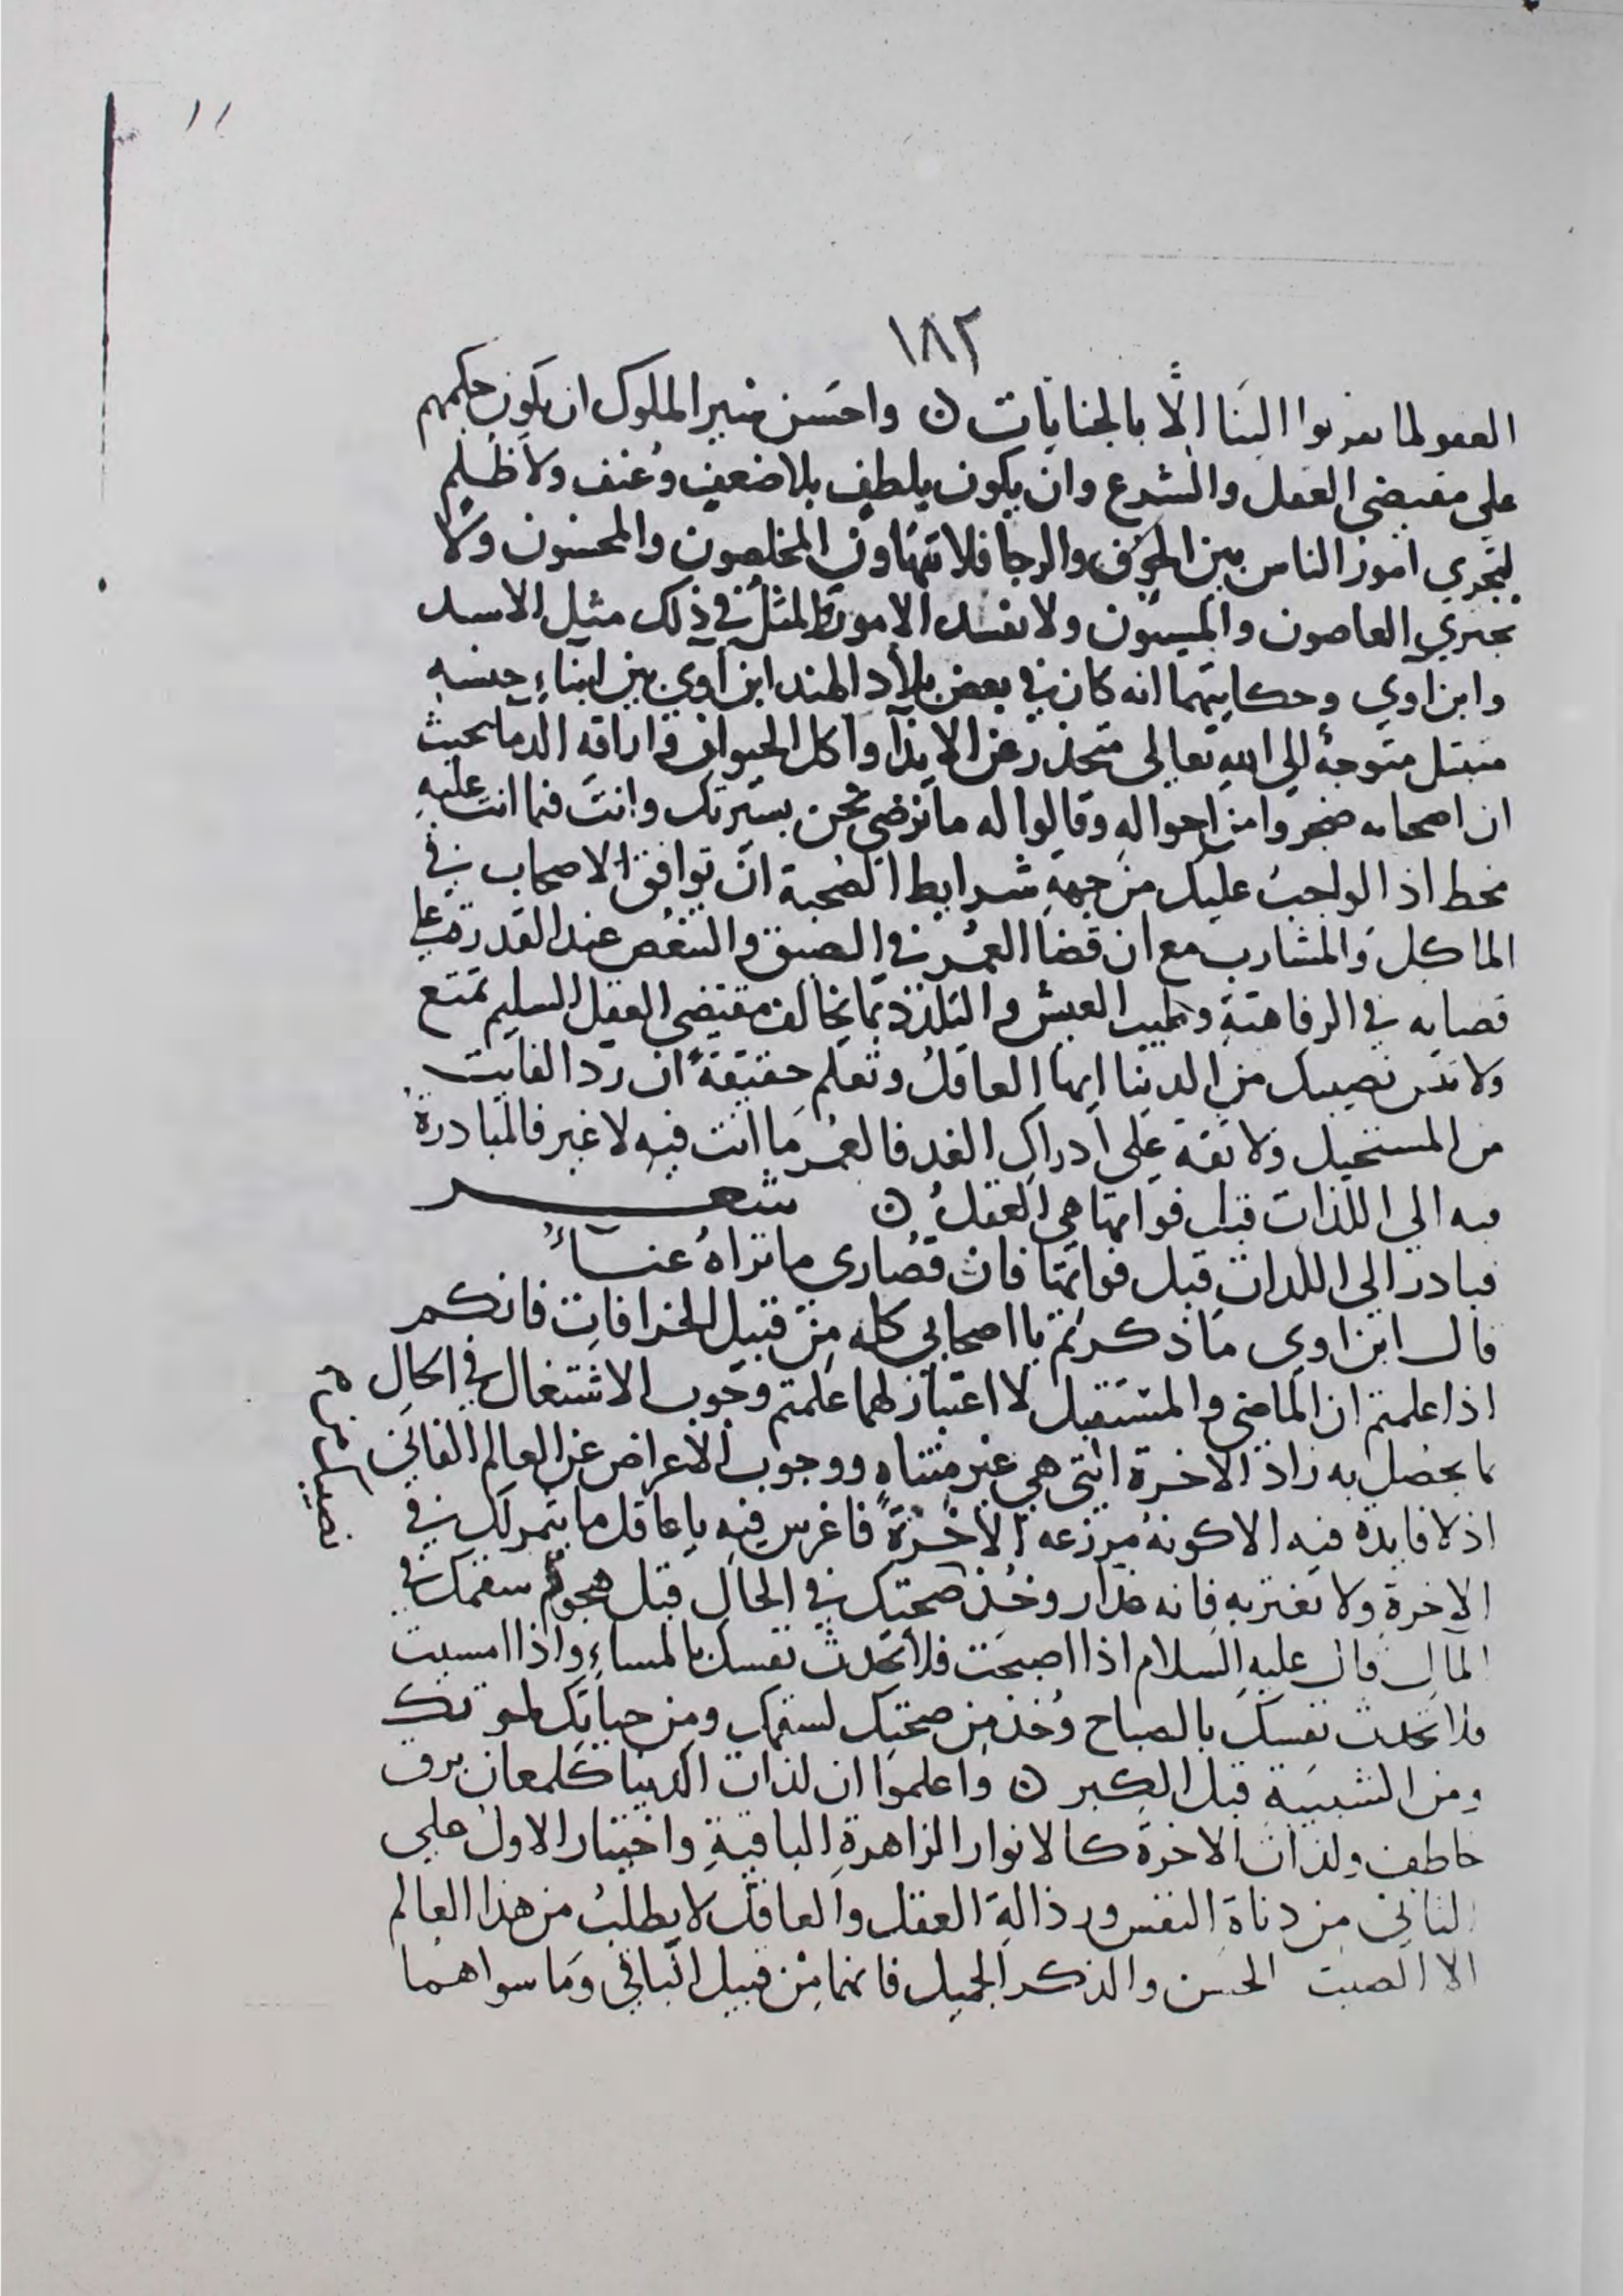 ١١
١٨٢
العفو لما تقربوا الينا الّا بالجنايات ن واحسن سير الملوك ان يكون حكمهم
علي مقتضي العقل والشرع وان يكون بلطف بلا ضعف وعنف ولا ظلم
لتجري امور الناس بين الخوف والرجا فلا تهاون المخلصون والمحسنون ولا
يجتري العاصون والمسيون ولا تفسد الامور والمثل في ذلك مثل الاسد
وابن اوي وحكايتهما انه كان في بعض بلاد الهند ابن اوي بين ابناء جنسه
متبتل متوجه الي الله تعالي متحذر عن الايذا واكل الحيوان واراقة الدما بحيث
ان اصحابه ضجروا من احواله وقالوا له ما نرضي نحن بسيرتك وانت فيما انت عليه
مخط اذ الواجب عليك من جهة شرايط الصحبة ان توافق الاصحاب في
الماكل والمشارب مع ان قضا العمر في الضيق والتنغص عند القدرة علي
قضايه في الرفاهية وطيب العيش والتلذذ مما يخالف مقتضي العقل السليم تمتع
ولا تنس نصيبك من الدنيا ايها العاقل وتعلم حقيقةً ان رد الفايت
من المستحيل ولا ثقة علي ادراك الغد فالعمر ما انت فيه لا غير فالمبادرة
فيه الي اللذات قبل فواتها هي العقل ن شعر
فبادر الي اللذات قبل فواتها فان قصاري ما تراه عناءُ
قال ابن اوي ما ذكرتم يا اصحابي كله من قبيل الخرافات فانكم
اذا علمتم ان الماضي والمستقبل لا اعتبار لهما علمتم وجوب الاشتغال في الحال
بما يحصل به زاد الاخرة التي هي غير متناه ووجوب الاعراض عن العالم الفاني
اذ لا فايدة فيه الا كونه مزرعه الاخرة فاغرس فيه يا عاقل ما يثمر لك في
الاخرة ولا تغتر به فانه غدار وخذ صحتك في الحال قبل هجوم سقمك في
المآل قال عليه السلام اذا اصبحت فلا تحدث نفسك بالمساء واذا امسيت
فلا تحدث نفسك بالصباح وخذ من صحتك لسقمك ومن حياتك لموتك
ومن الشبيبة قبل الكبر ن واعلموا ان لذات الدنيا كلمعان برق
خاطف ولذات الاخرة كالانوار الزاهرة الباقية واختيار الاول علي
الثاني من دناة النفس ورذالة العقل والعاقل لا يطلب من هذا العالم
الا الصيت الحسن والذكر الجميل فانهما من قبيل الباقي وما سواهما